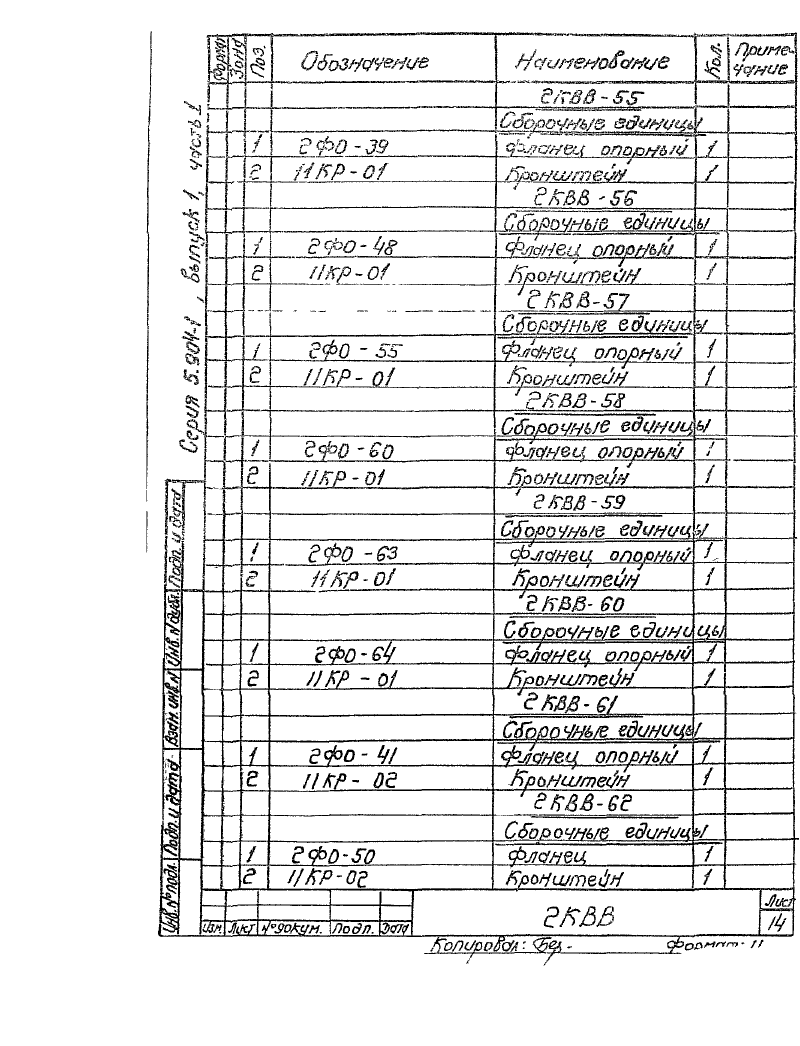 Форм. Зона Поз. Обозначение Наименование Кол. Приме-
чание
2КВВ-55
Сборочные единицы
1 2ФО-39 Фланец опорный 1
2 11КР-01 Кронштейн 1
2КВВ-56
Сборочные единицы
1 2ФО-48 Фланец опорный 1
2 11КР-01 Кронштейн 1
2КВВ-57
Сборочные единицы
1 2ФО-55 Фланец опорный 1
2 11КР-01 Кронштейн 1
2КВВ-58
Сборочные единицы
1 2ФО-60 Фланец опорный 1
2 11КР-01 Кронштейн 1
2КВВ-59
Сборочные единицы
1 2ФО-63 Фланец опорный 1
2 11КР-01 Кронштейн 1
2КВВ-60
Сборочные единицы
1 2ФО-64 Фланец опорный 1
2 11КР-01 Кронштейн 1
2КВВ-61
Сборочные единицы
1 2ФО-41 Фланец опорный 1
2 11КР-02 Кронштейн 1
2КВВ-62
Сборочные единицы
1 2ФО-50 Фланец 1
2 11КР-02 Кронштейн 1
Изм. Лист № докум. Подп. Дата
2КВВ
Лист
14
Копировал: Бег.- Формат- 11
Серия 5.904-1, Выпуск 1, часть 1
Инв.№ подл. Подп. и дата Взам. инв.№ Инв.№ дубл. Подп. и дата